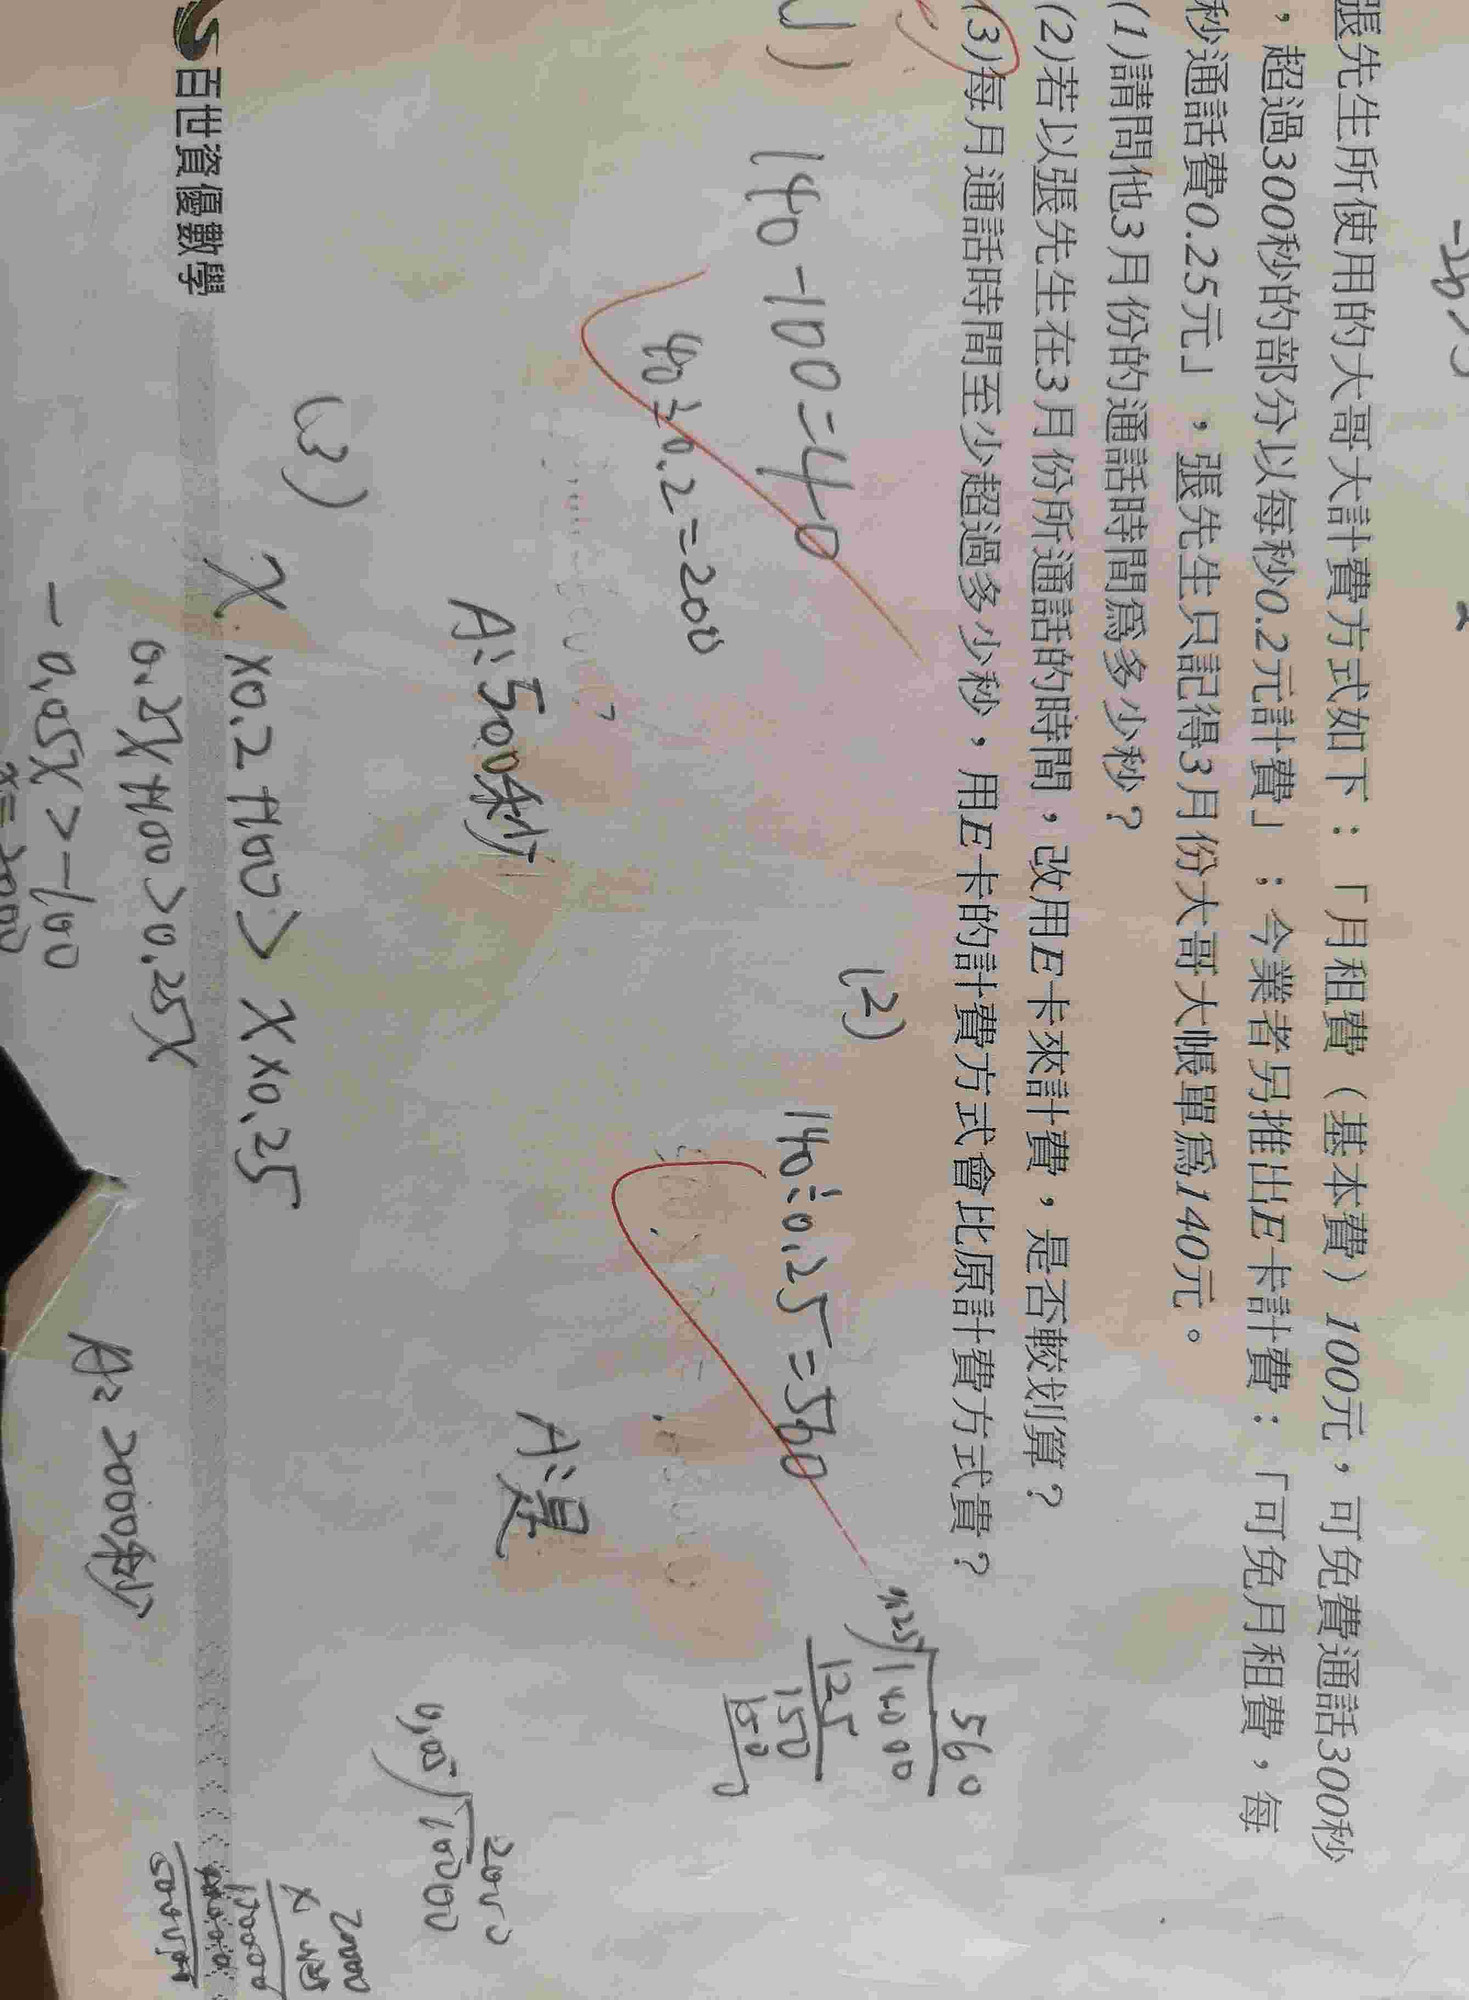 張先生所使用的大哥大計費方式如下：「月租費（基本費）100元，可免費通話300秒
，超過300秒的部分以每秒0.2元計費」；今業者另推出E卡計費：「可免月租費，每
秒通話費0.25元」，張先生只記得3月份大哥大帳單為140元。
(1)請問他3月份的通話時間為多少秒？
(2)若以張先生在3月份所通話的時間，改用E卡來計費，是否較划算？
(3)每月通話時間至少超過多少秒，用E卡的計費方式會比原計費方式貴？
140-100=40
40÷0.2=200
A:500秒
(2)
140÷0.25=560
A:是
560
14000
125
150
(3)
X×0.2+100>X×0.25
0.2X+100>0.25X
-0.05X>-100
A: 2000秒
百世資優數學